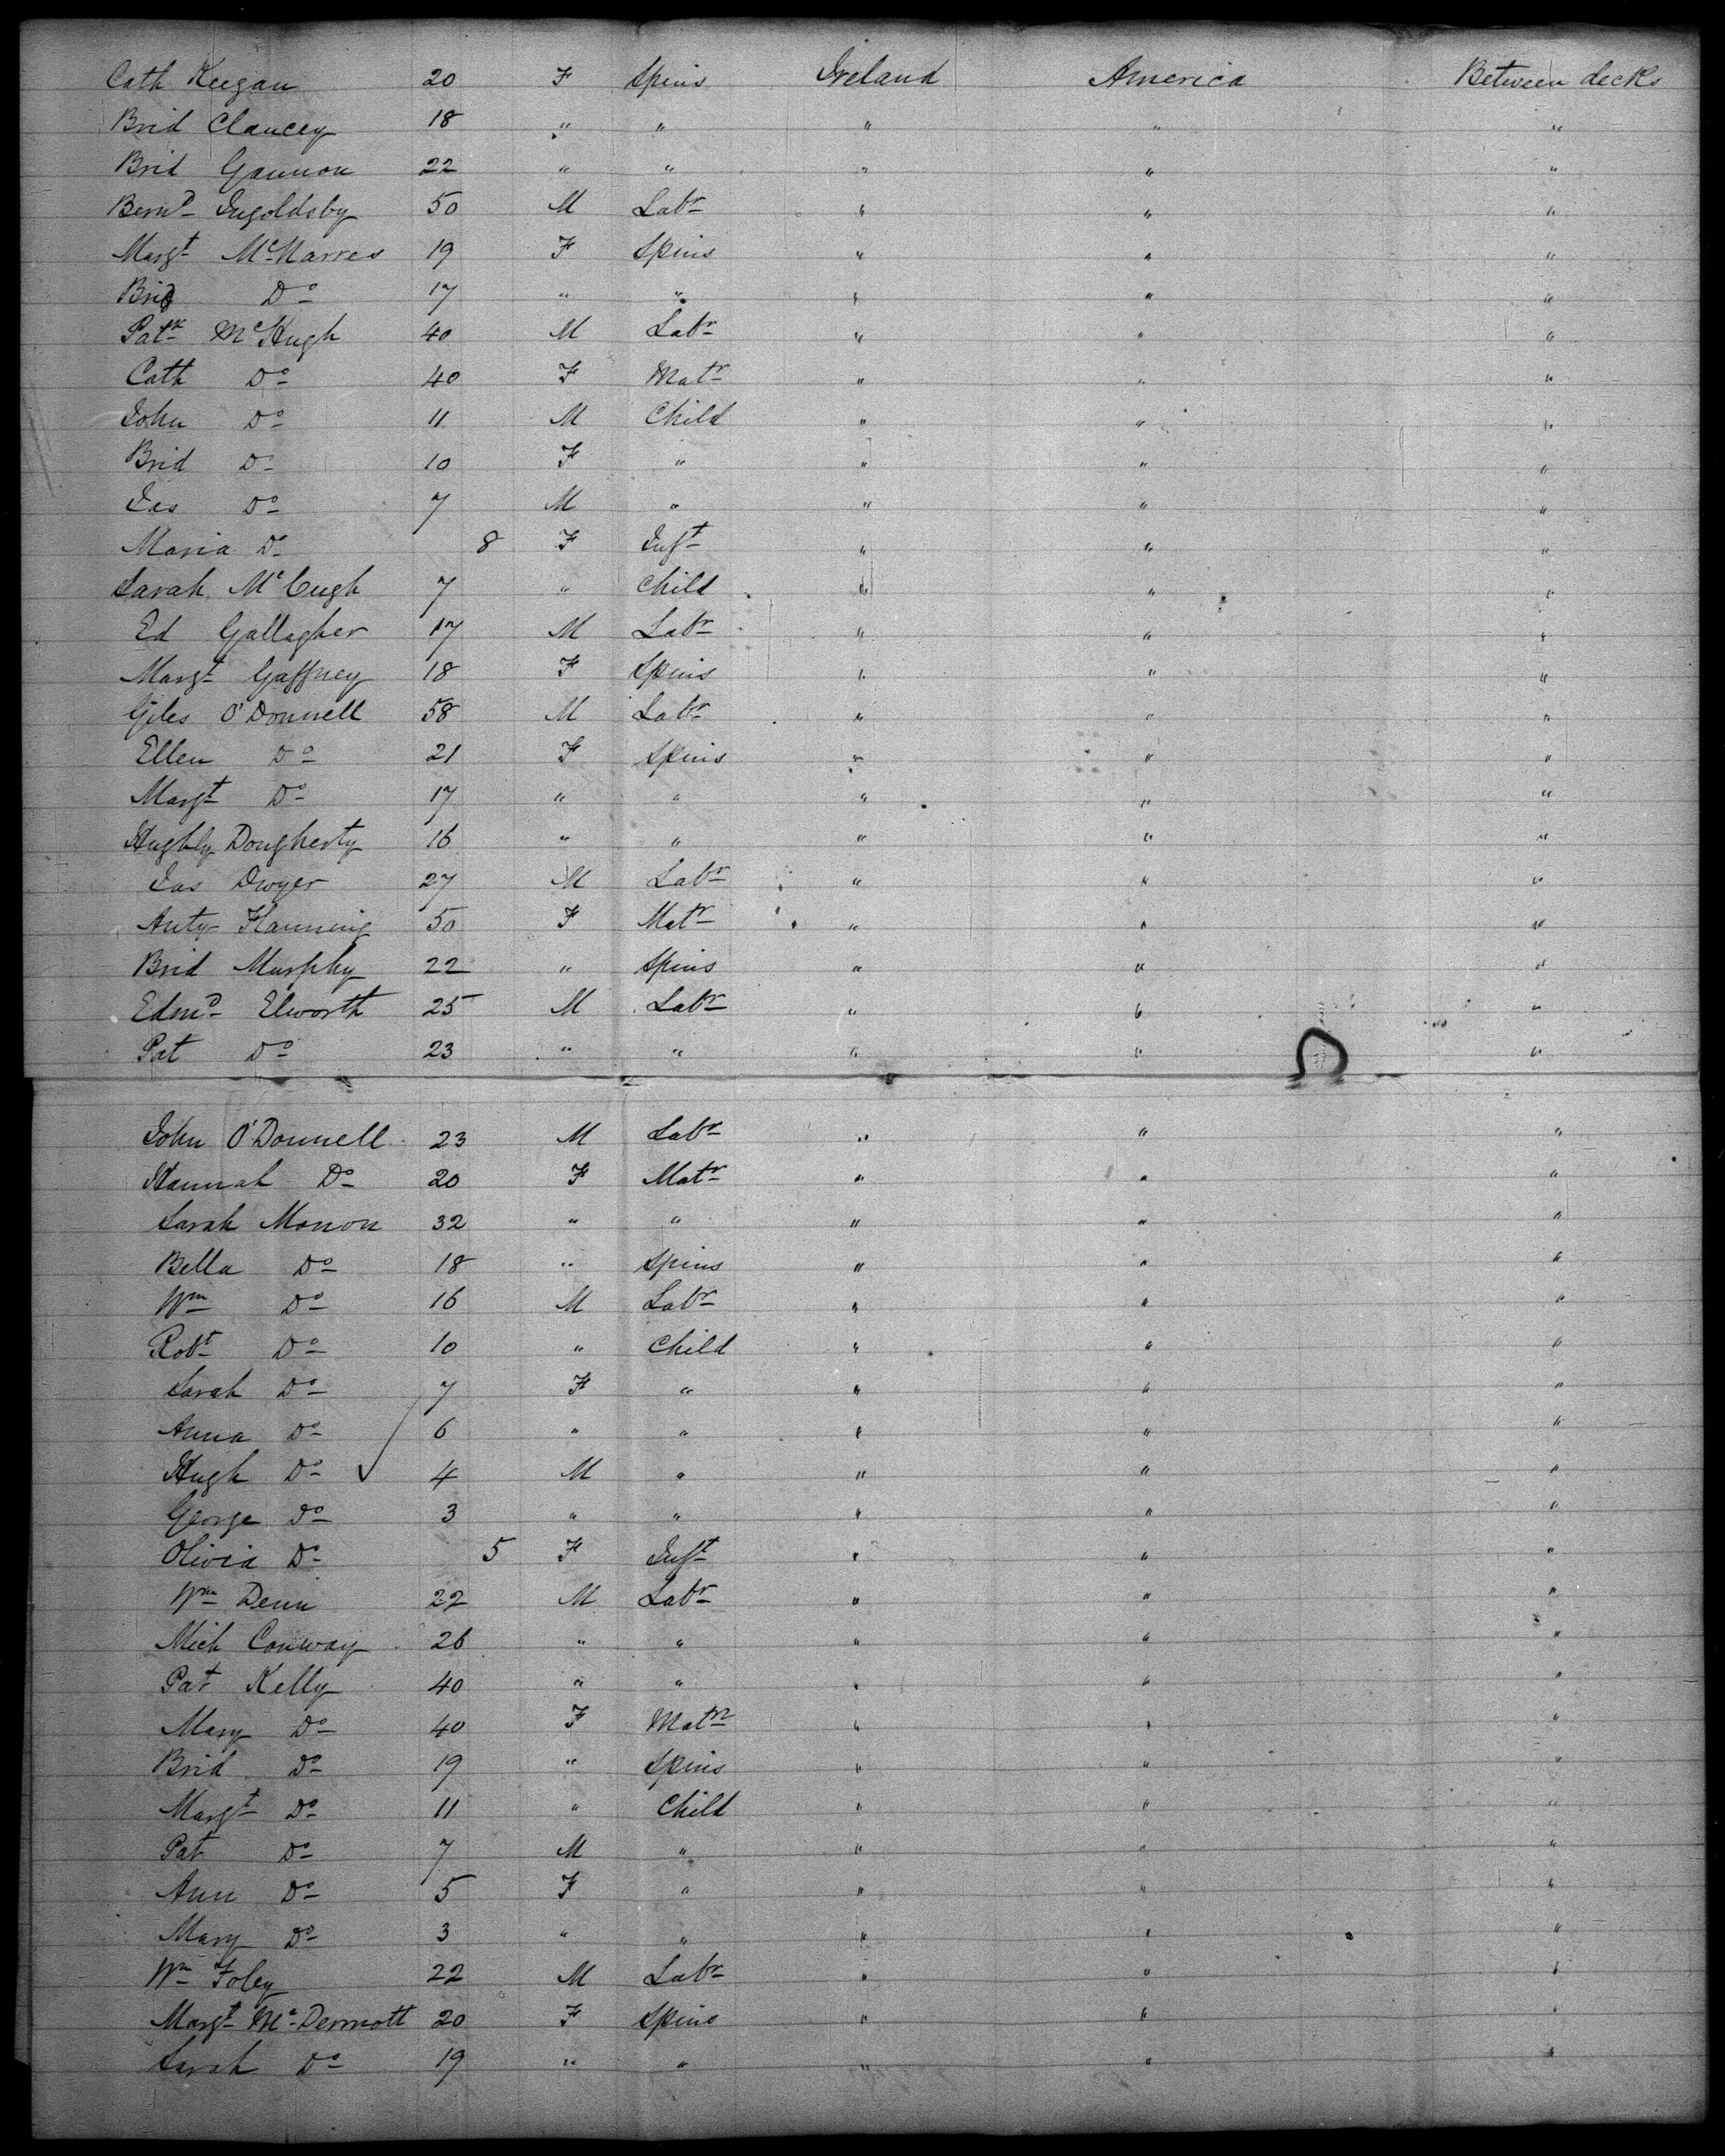 Cath Keegan 20 F Spins Ireland America Between decks
Brid Clancey 18 " " " " "
Brid Gannon 22 " " " " "
Bernd Ingoldsby 50 M Labr " " "
Margt McNarres 19 F Spins " " "
Brid Do 17 " " " " "
Patk McHugh 40 M Labr " " "
Cath Do 40 F Matr " " "
John Do 11 M Child " " "
Brid Do 10 F " " " "
Jas Do 7 M " " " "
Maria Do 8 F Inft " " "
Sarah McCugh 7 " Child " " "
Ed Gallagher 17 M Labr " " "
Margt Gaffney 18 F Spins " " "
Giles O'Donnell 58 M Labr " " "
Ellen Do 21 F Spins " " "
Margt Do 17 " " " " "
Hughly Dougherty 16 " " " " "
Jas Dwyer 27 M Labr " " "
Anty Flanning 50 F Matr " " "
Brid Murphy 22 " Spins " " "
Edmd Elworth 25 M Labr " " "
Pat Do 23 " " " " "
John O'Donnell 23 M Labr " " "
Hannah Do 20 F Matr " " "
Sarah Monon 32 " " " " "
Bella Do 18 " Spins " " "
Wm Do 16 M Labr " " "
Robt Do 10 " Child " " "
Sarah Do 7 F " " " "
Anna Do 6 " " " " "
Hugh Do 4 M " " " "
George Do 3 " " " " "
Olivia Do 5 F Inft " " "
Wm Denn 22 M Labr " " "
Mich Conway 26 " " " " "
Pat Kelly 40 " " " " "
Mary Do 40 F Matn " " "
Brid Do 19 " Spins " " "
Margt Do 11 " Child " " "
Pat Do 7 M " " " "
Ann Do 5 F " " " "
Mary Do 3 " " " " "
Wm Foley 22 M Labr " " "
Margt McDermott 20 F Spins " " "
Sarah Do 19 " " " " "